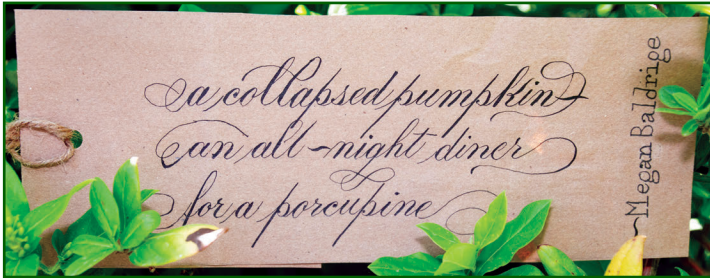 a collapsed pumpkin
an all-night diner
for a porcupine
~Megan Baldrige